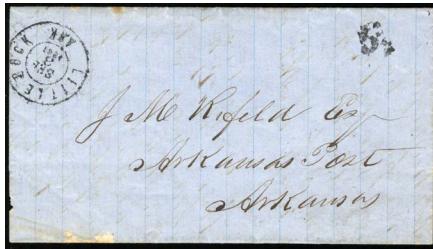 LITTLE ROCK ARK
SEP
1861
J M Kefeld Esq
Arkansas Post
Arkansas